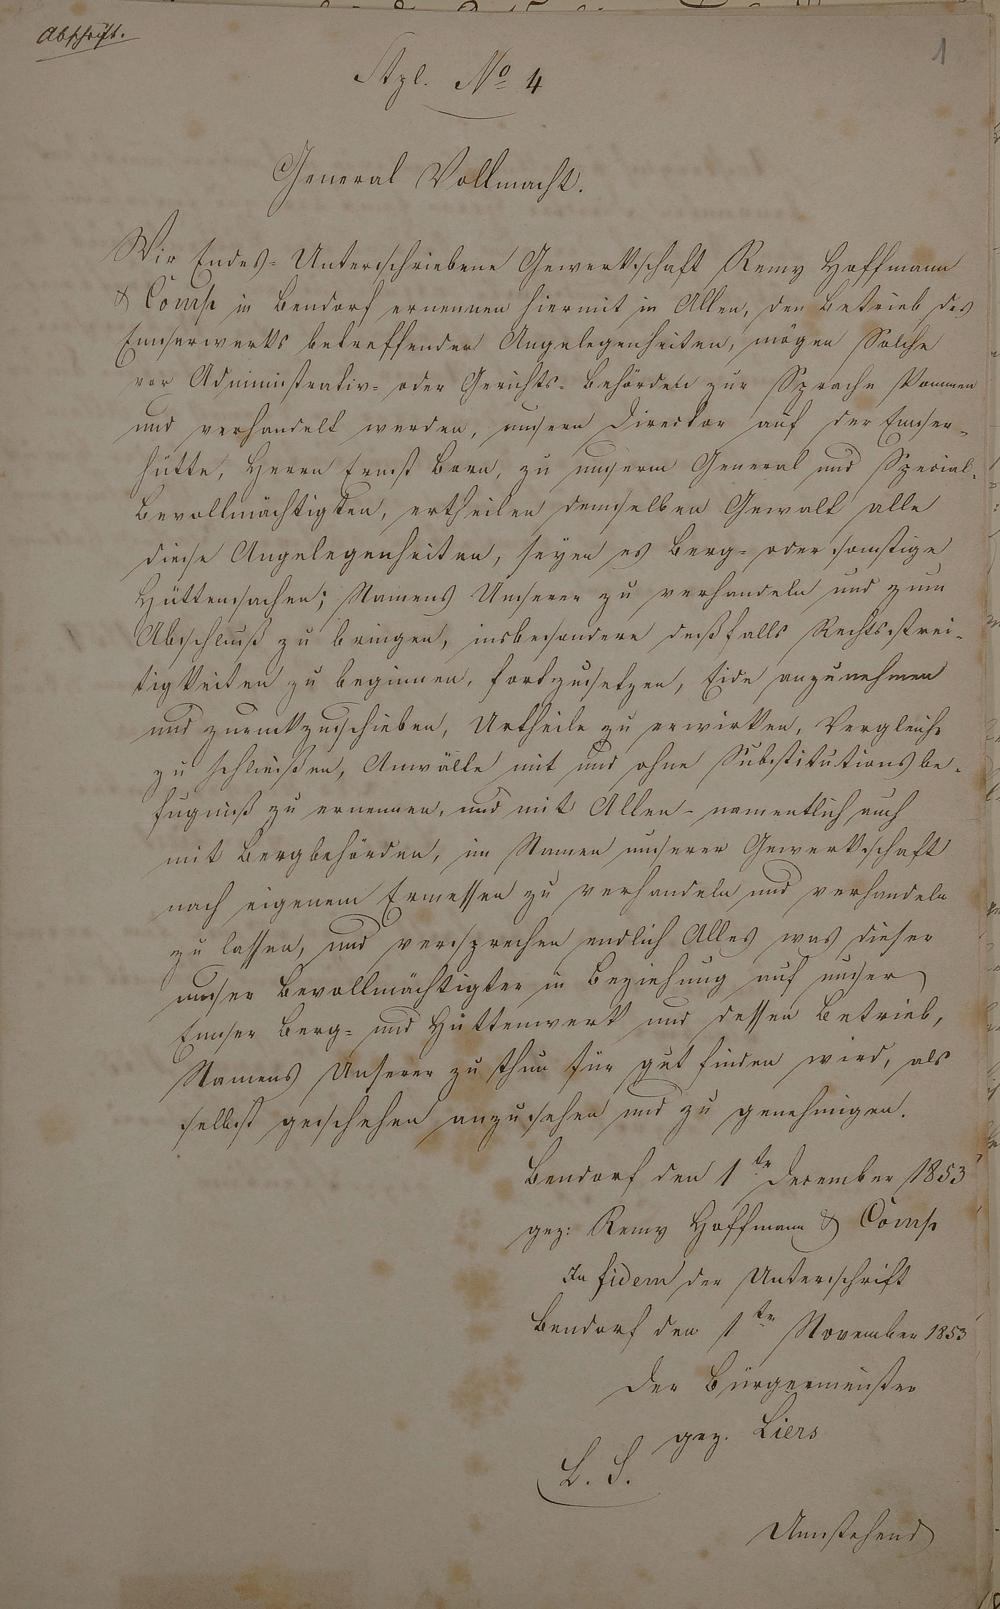 Abschrift.
1
Stpl. No 4
General Vollmacht.
Wir Endes-Unterschriebene Gewerkschaft Remy Hoffmann
& Comp in Bendorf ernennen hiermit in Allen, den Betrieb des
Emserwerks betreffenden Angelegenheiten, mögen Solche
vor Administrativ- oder Gerichts-Behörden zur Sprache kommen
und verhandelt werden, unsern Director auf der Emser-
hütte, Herrn Ernst Born, zu unserm General und Special-
Bevollmächtigten, ertheilen demselben Gewalt alle
diese Angelegenheiten, seyen es Berg- oder sonstige
Hüttensachen; Namens Unserer zu verhandeln und zum
Abschluß zu bringen, insbesondere deßfalls Rechtsstrei-
tigkeiten zu beginnen, fortzusetzen, Eide anzunehmen
und zurückzuschieben, Urtheile zu erwirken, Vergleiche
zu schließen, Anwälte mit und ohne Substitutionsbe-
fugniß zu ernennen, und mit Allen - namentlich auch
mit Bergbehörden, im Namen unserer Gewerkschaft
nach eigenem Ermessen zu verhandeln und verhandeln
zu lassen, und versprechen endlich Alles was dieser
unser Bevollmächtigter in Beziehung auf unser
Emser Berg- und Hüttenwerk und dessen Betrieb,
Namens Unserer zu thun für gut finden wird, als
selbst geschehen anzusehen und zu genehmigen.
Bendorf den 1ten December 1853
gez: Remy Hoffmann & Comp
In fidem der Unterschrift
Bendorf den 1ten November 1853
Der Bürgermeister
gez. Liers
L. S.
Umstehend